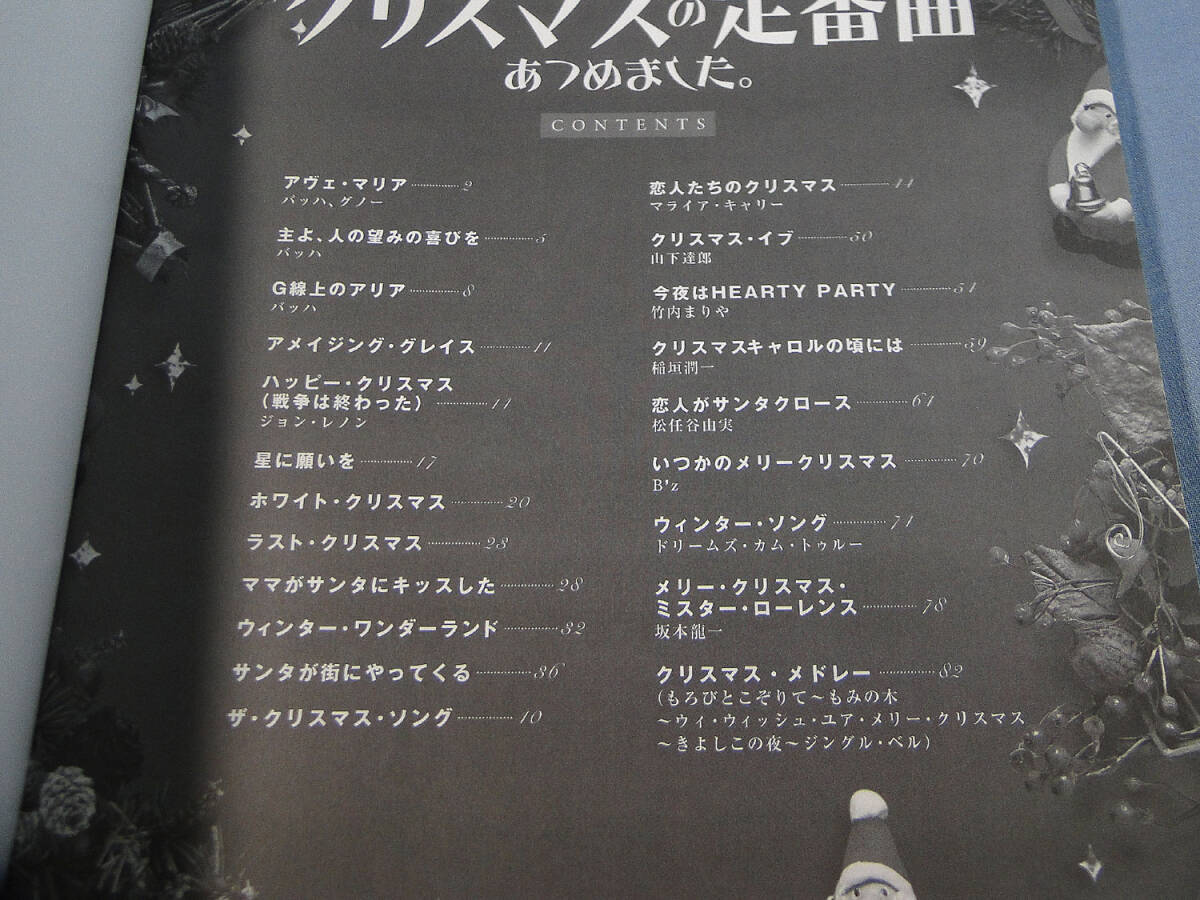 クリスマスの定番曲
あつめました。
CONTENTS
アヴェ・マリア 2
バッハ、グノー
主よ、人の望みの喜びを 5
バッハ
G線上のアリア 8
バッハ
アメイジング・グレイス 11
ハッピー・クリスマス
(戦争は終わった) 14
ジョン・レノン
星に願いを 17
ホワイト・クリスマス 20
ラスト・クリスマス 23
ママがサンタにキッスした 28
ウィンター・ワンダーランド 32
サンタが街にやってくる 36
ザ・クリスマス・ソング 40
恋人たちのクリスマス 44
マライア・キャリー
クリスマス・イブ 50
山下達郎
今夜はHEARTY PARTY 54
竹内まりや
クリスマスキャロルの頃には 59
稲垣潤一
恋人がサンタクロース 64
松任谷由実
いつかのメリークリスマス 70
B'z
ウィンター・ソング 74
ドリームズ・カム・トゥルー
メリー・クリスマス・
ミスター・ローレンス 78
坂本龍一
クリスマス・メドレー 82
(もろびとこぞりて〜もみの木
〜ウィ・ウィッシュ・ユア・メリー・クリスマス
〜きよしこの夜〜ジングル・ベル)